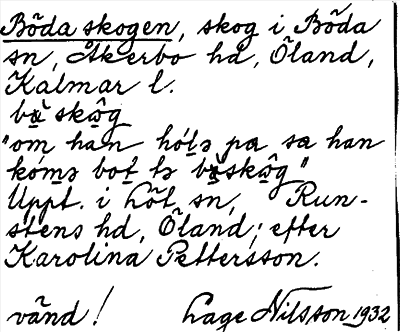 Böda skogen, skog i Böda
sn, Åkerbo hd, Öland,
Kalmar l.
skộg
"om han pa sa han
"
Uppt. i Löt sn, Run-
stens hd, Öland; efter
Karolina Pettersson.
vänd! Lage Nilsson 1932